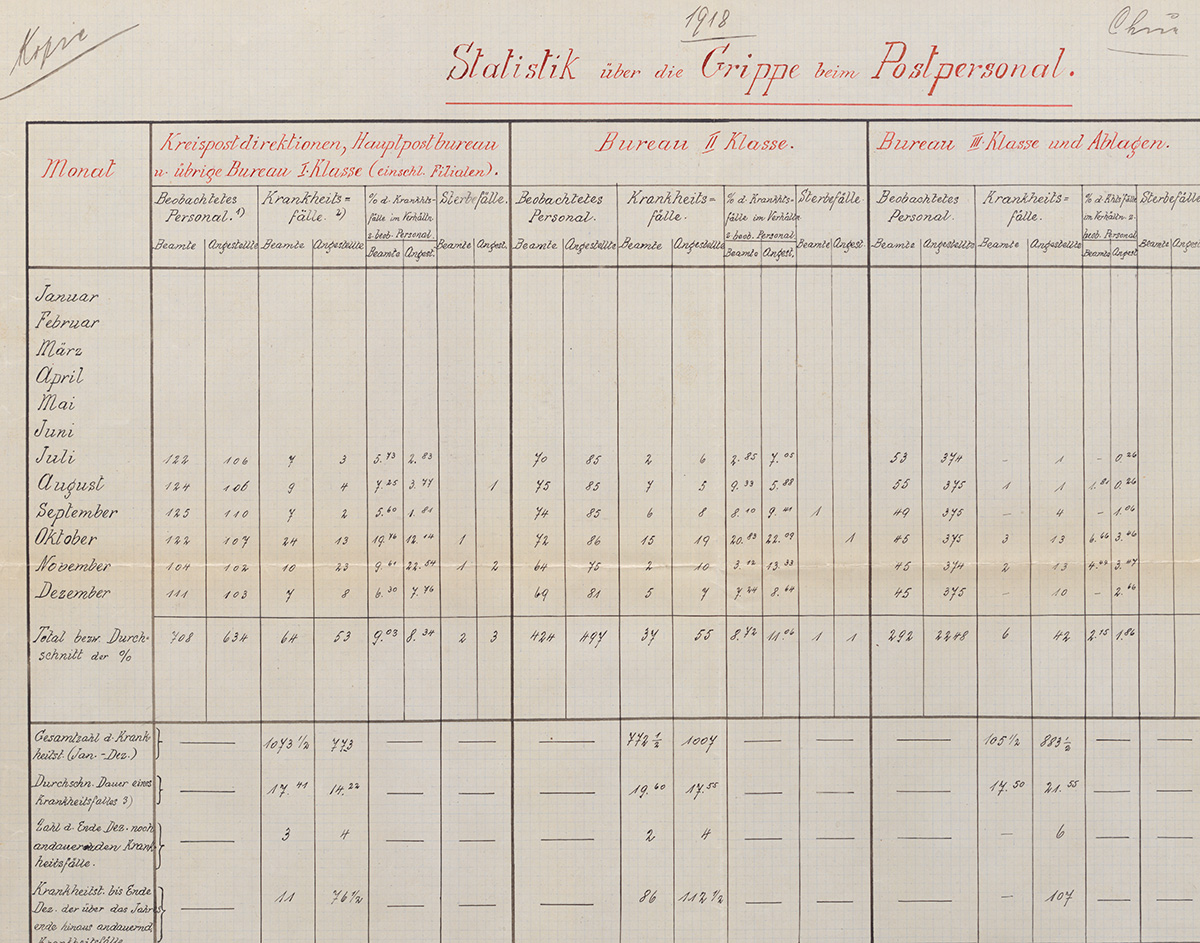 Kopie
1918
Statistik über die Grippe beim Postpersonal.
Monat
Kreispostdirektionen, Hauptpostbureau
u. übrige Bureau I. Klasse (einschl. Filialen).
Bureau II Klasse.
Bureau III. Klasse und Ablagen.
Beobachtetes Personal. 1) Krankheits= fälle. 2) % d. Krankhts- fälle im Verhältn. z. beob. Personal Sterbefälle. Beobachtetes Personal. Krankheits= fälle. % d. Krankhts- fälle im Verhältn. z. beob. Personal Sterbefälle Beobachtetes Personal. Krankheits= fälle. % d. Khtsfälle im Verhältn. z. beob. Personal Sterbefälle
Beamte Angestellte Beamte Angestellte Beamte Angest. Beamte Angest. Beamte Angestellte Beamte Angestellte Beamte Angest. Beamte Angest. Beamte Angestellte Beamte Angestellte Beamte Angest. Beamte Anges
Januar
Februar
März
April
Mai
Juni
Juli 122 106 7 3 5.73 2.83 70 85 2 6 2.85 7.05 53 374 - 1 - 0.26
August 124 106 9 4 7.25 3.77 1 75 85 7 5 9.33 5.88 55 375 1 1 1.81 0.26
September 125 110 7 2 5.60 1.81 74 85 6 8 8.10 9.41 1 49 375 - 4 - 1.06
Oktober 122 107 24 13 19.76 12.14 1 72 86 15 19 20.83 22.09 1 45 375 3 13 6.66 3.46
November 104 102 10 23 9.61 22.54 1 2 64 75 2 10 3.12 13.33 45 374 2 13 3.47
Dezember 111 103 7 8 6.30 7.76 69 81 5 7 7.24 8.64 45 375 - 10 - 2.66
Total bezw. Durch- 708 634 64 53 9.03 8.34 2 3 424 497 37 55 8.72 11.06 1 1 292 2248 6 42 2.15 1.86
schnitt der %
Gesamtzahl d. Krank- 1073 1/2 773 772 1/2 1007 105 1/2 883 1/2
heitst. (Jan. - Dez.)
Durchschn. Dauer eines 17.41 14.22 19.60 17.55 17.50 21.55
Krankheitsfalles 3)
Zahl d. Ende Dez. noch 3 4 2 4 - 6
andauernden Krank-
heitsfälle.
Krankheitst. bis Ende 11 76 1/2 86 112 1/2 - 107
Dez. der über das Jahres
ende hinaus andauernd.
Krankheitsfälle